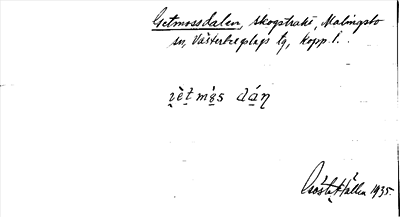 Getmossdalen, skogstrakt, Malingsbo
sn, Västerbergslags tg, Kopp. l.
Gösta Hallen 1935.